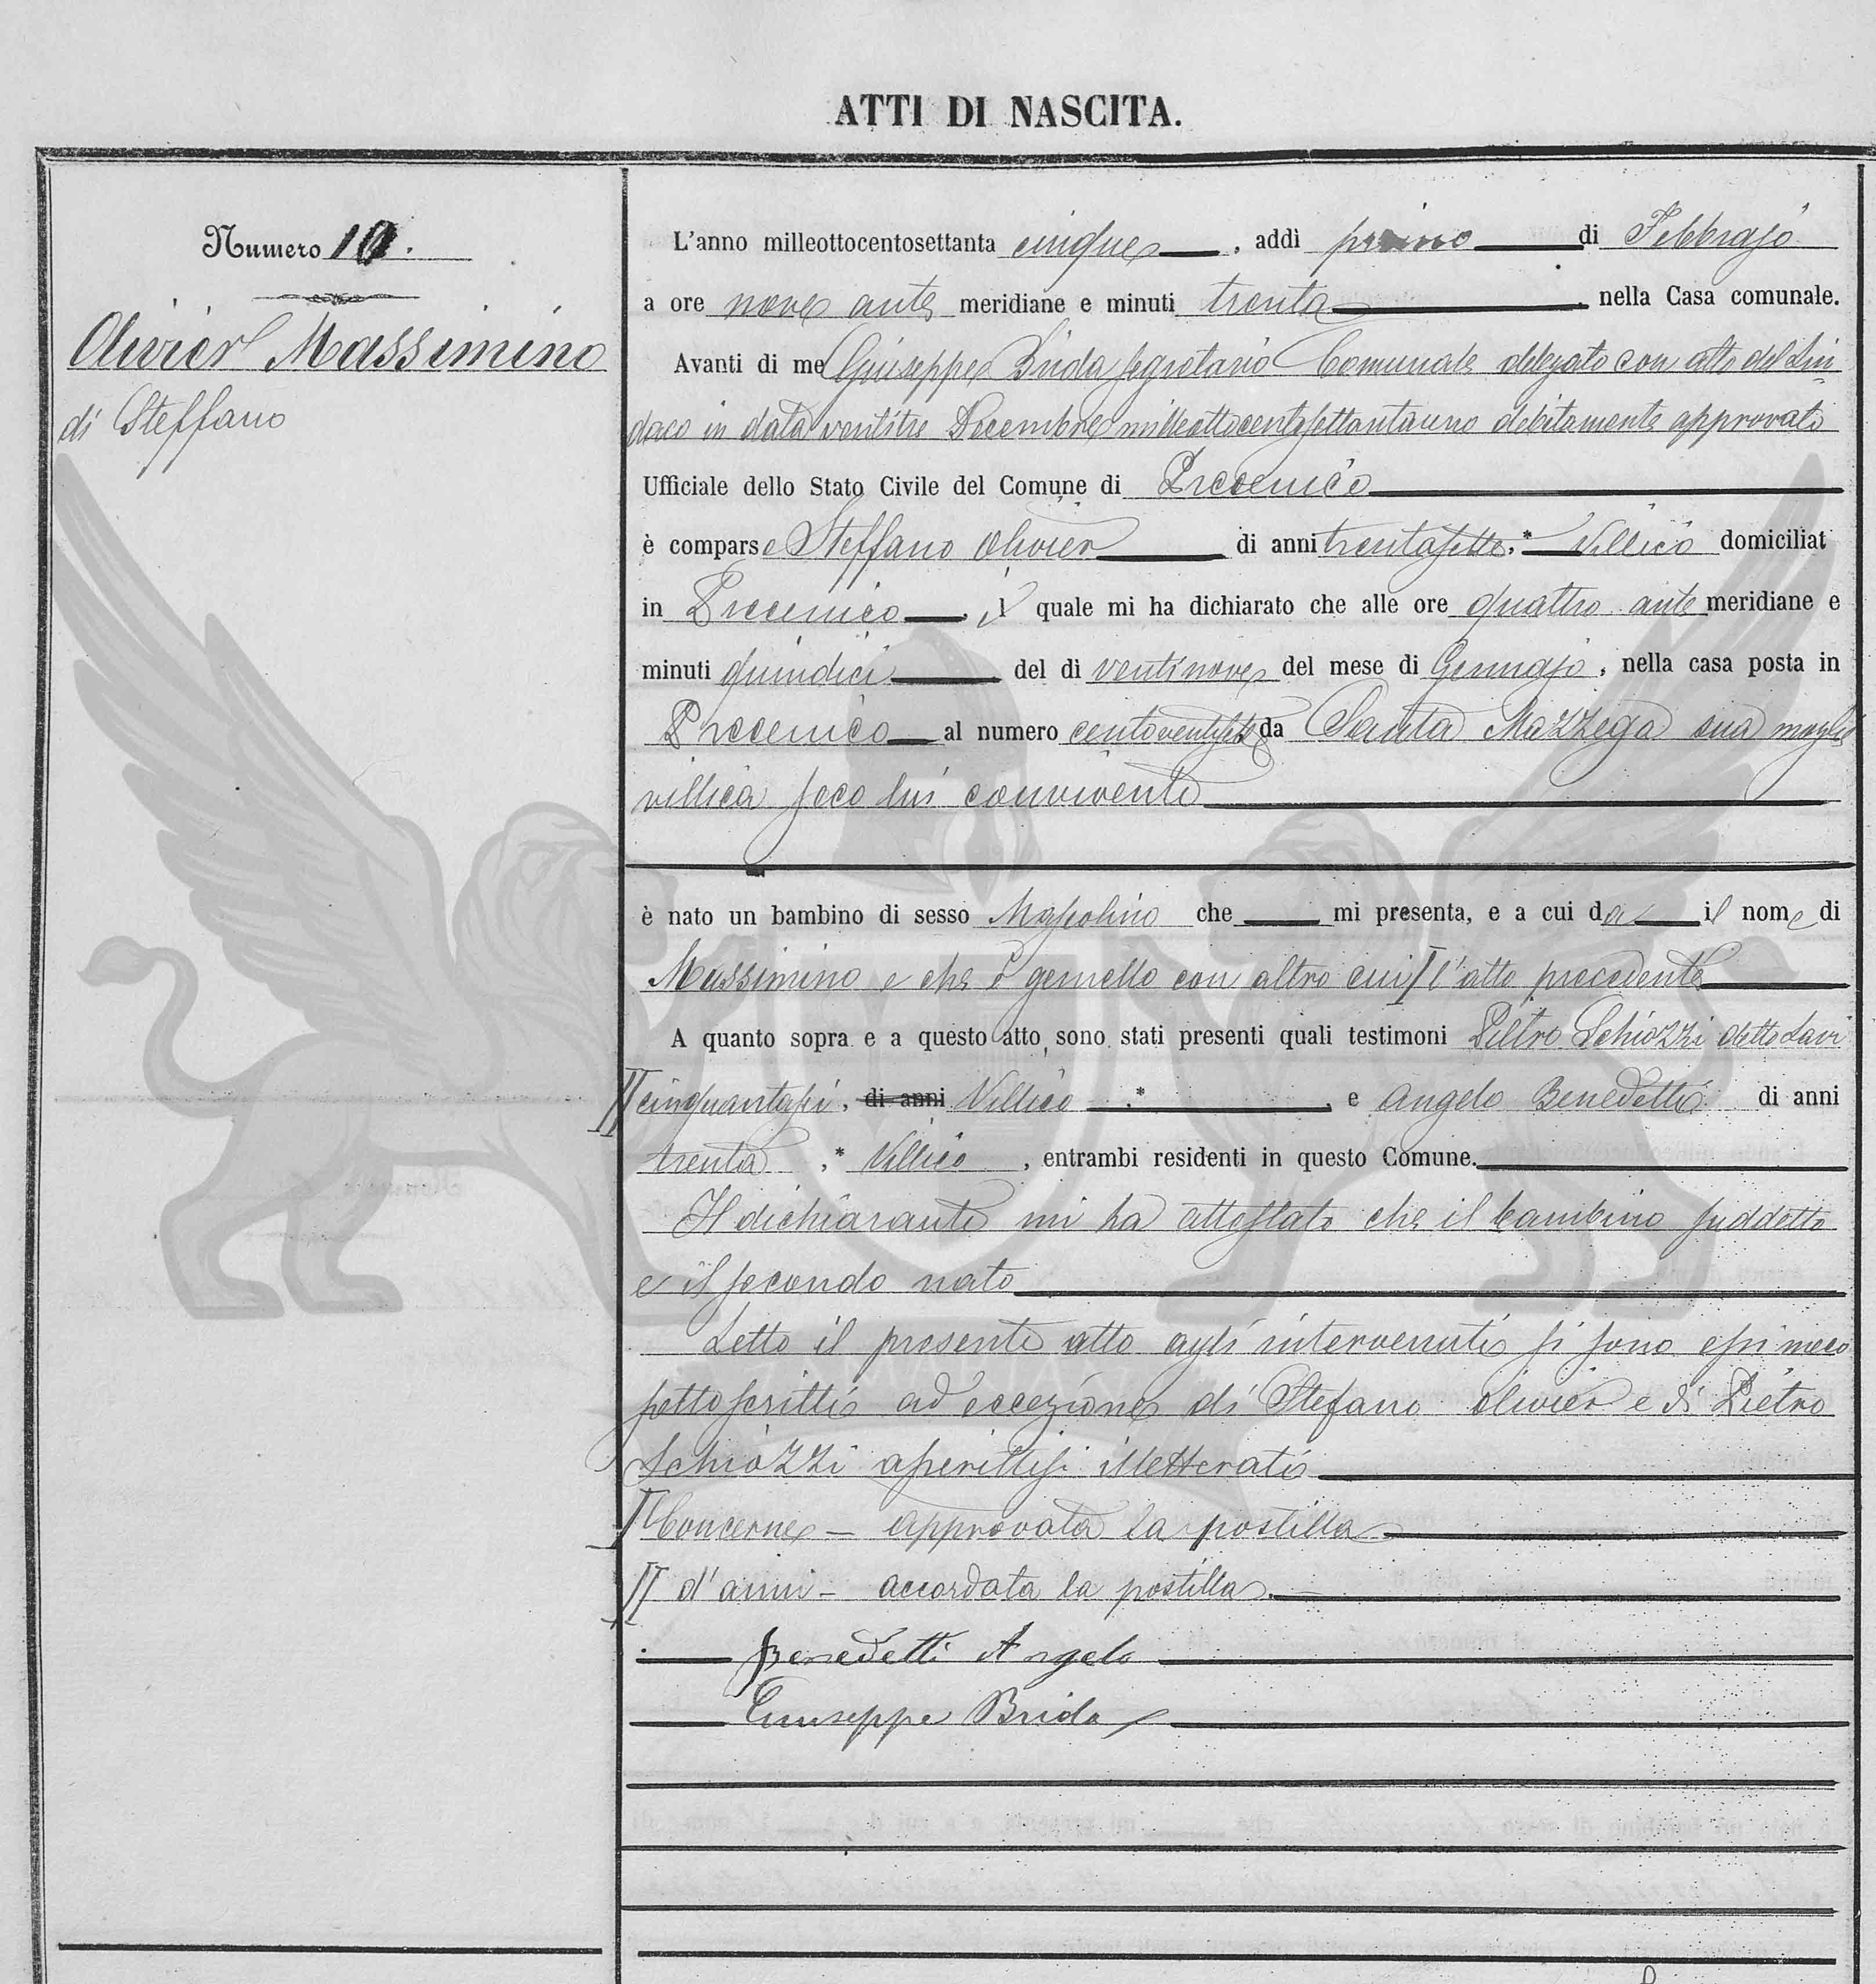 ATTI DI NASCITA.
Numero 10.
Olivier Massimino
di Steffano
L'anno milleottocentosettanta cinque, addì primo di Febbrajo
a ore nove ante meridiane e minuti trenta, nella Casa comunale.
Avanti di me Giuseppe Brida Segretario Comunale delegato con atto del Sin
daco in data ventitre Decembre milleottocentosettantauno debitamente approvato
Ufficiale dello Stato Civile del Comune di Precenico
è comparso Steffano Olivier di anni trentasette, * Villico domiciliat
in Precenico, il quale mi ha dichiarato che alle ore quattro ante meridiane e
minuti quindici del dì ventinove del mese di Gennajo, nella casa posta in
Precenico al numero centoventisette da Santa Mazzega sua moglie
villica seco lui convivente
è nato un bambino di sesso Mascolino che mi presenta, e a cui dà il nome di
Massimino e che è gemello con altro cui I l'atto precedente
A quanto sopra e a questo atto, sono stati presenti quali testimoni Pietro Schiozzi detto
II cinquantasei, di anni Villico * e Angelo Benedetti di anni
trenta, * Villico, entrambi residenti in questo Comune.
Il dichiarante mi ha attestato che il bambino suddetto
e il secondo nato
Letto il presente atto agli intervenuti si sono essi meco
sottoscritti ad eccezione di Stefano Olivier e di Pietro
Schiozzi asserittisi illetterati
I Concerne - approvata la postilla
II d'anni - accordata la postilla.
Benedetti Angelo
Giuseppe Brida